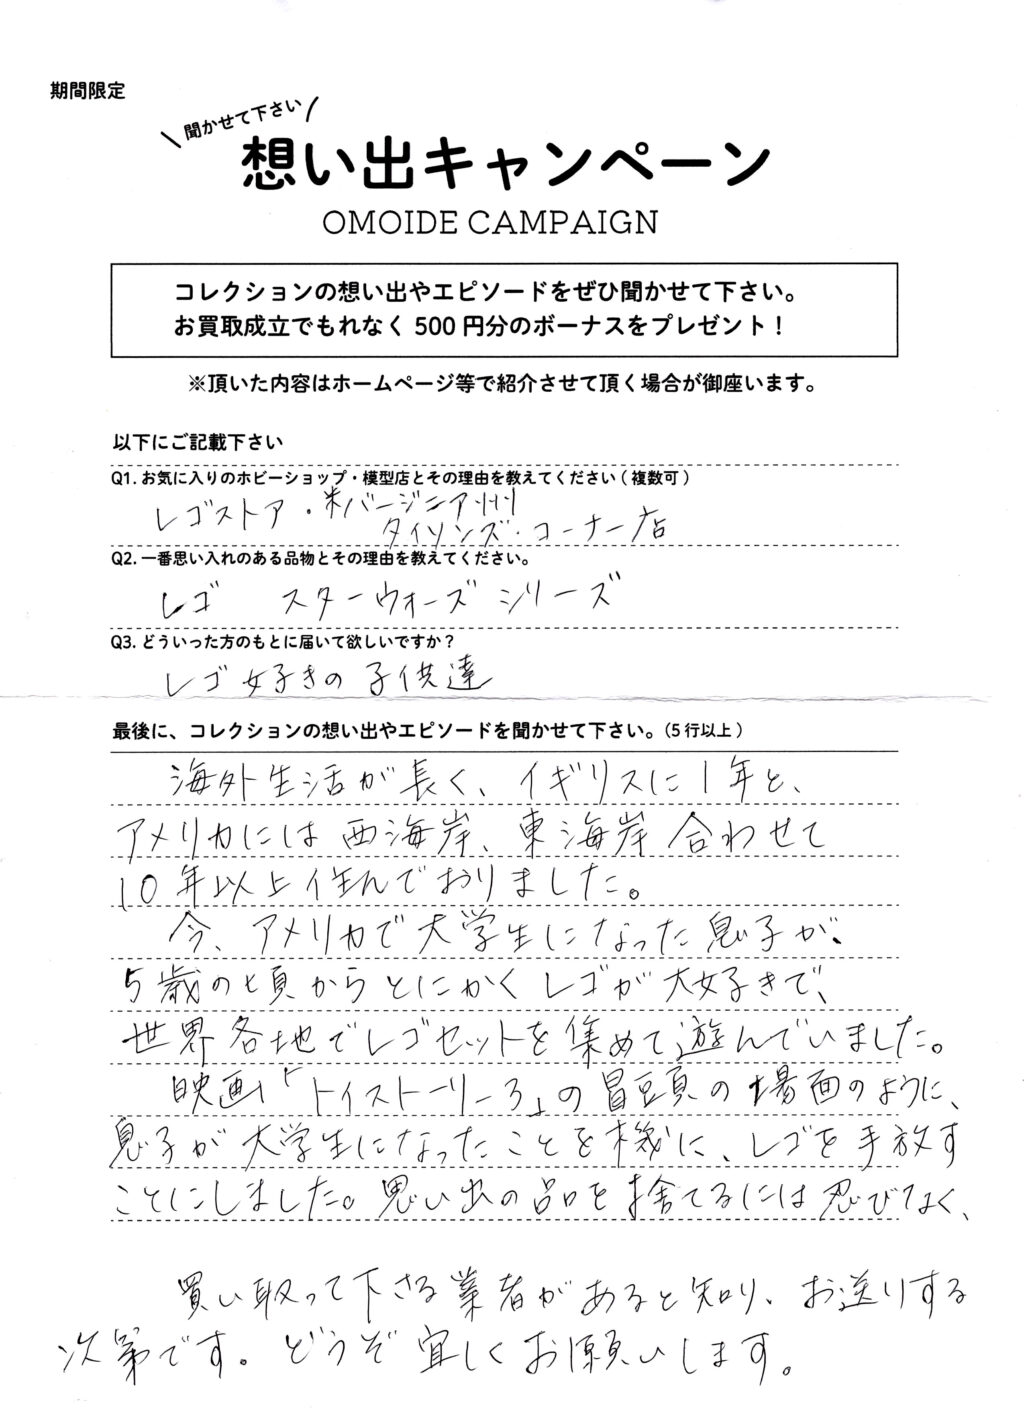 期間限定
聞かせて下さい
想い出キャンペーン
OMOIDE CAMPAIGN
コレクションの想い出やエピソードをぜひ聞かせて下さい。
お買取成立でもれなく 500 円分のボーナスをプレゼント！
※頂いた内容はホームページ等で紹介させて頂く場合が御座います。
以下にご記載下さい
Q1. お気に入りのホビーショップ・模型店とその理由を教えてください ( 複数可 )
レゴストア・米バージニア州
タイソンズ・コーナー店
Q2. 一番思い入れのある品物とその理由を教えてください。
レゴ スターウォーズ シリーズ
Q3. どういった方のもとに届いて欲しいですか？
レゴ好きの子供達
最後に、コレクションの想い出やエピソードを聞かせて下さい。（5 行以上）
海外生活が長く、イギリスに1年と、
アメリカには西海岸、東海岸合わせて
10年以上住んでおりました。
今、アメリカで大学生になった息子が、
5歳の頃からとにかくレゴが大好きで、
世界各地でレゴセットを集めて遊んでいました。
映画「トイストーリー3」の冒頭の場面のように、
息子が大学生になったことを機に、レゴを手放す
ことにしました。思い出の品を捨てるには忍びなく、
買い取って下さる業者があると知り、お送りする
次第です。どうぞ宜しくお願いします。